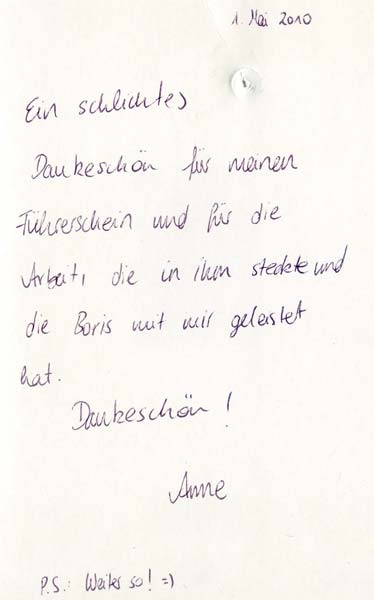 1. Mai 2010
Ein schlichtes
Dankeschön für meinen
Führerschein und für die
Arbeit, die in ihm steckte und
die Boris mit mir geleistet
hat.
Dankeschön!
Anne
P.S.: Weiter so! =)